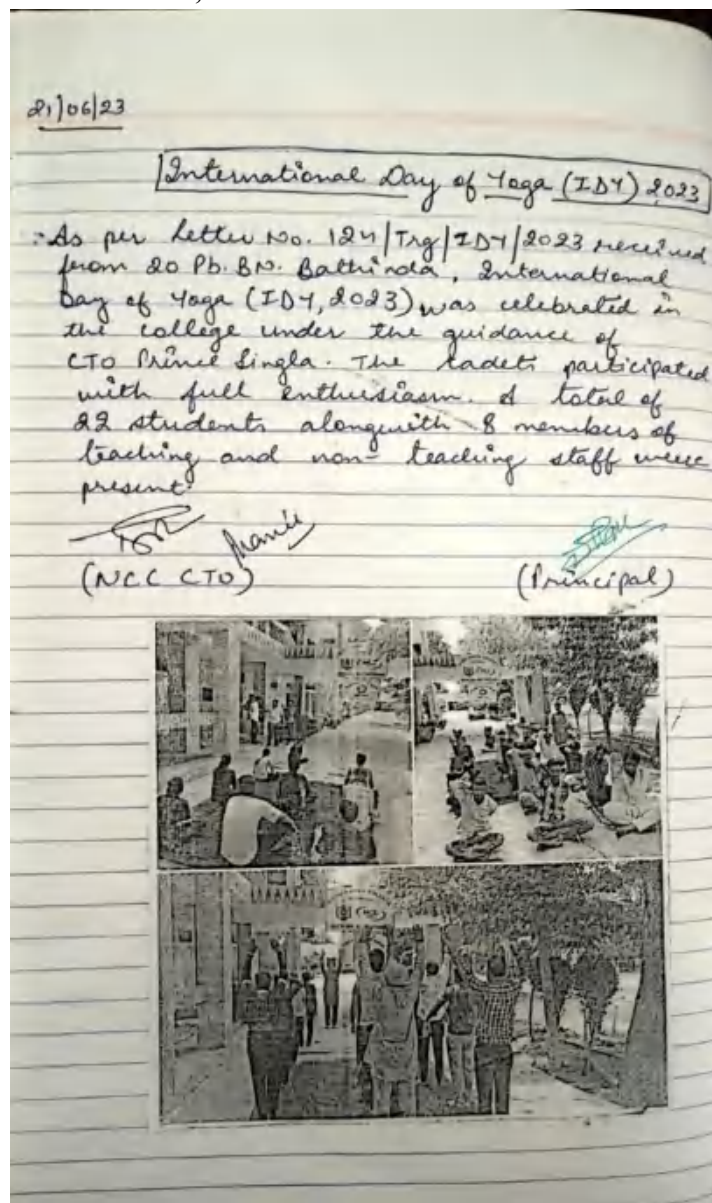 21/06/23
International Day of Yoga (IDY) 2023
As per letter No. 124/Trg/IDY/2023 received
from 20 Pb. BN. Bathinda, International
Day of Yoga (IDY, 2023) was celebrated in
the college under the guidance of
CTO Prince Singla. The cadets participated
with full enthusiasm. A total of
22 students alongwith 8 members of
teaching and non-teaching staff were
present.
(NCC CTO) (Principal)